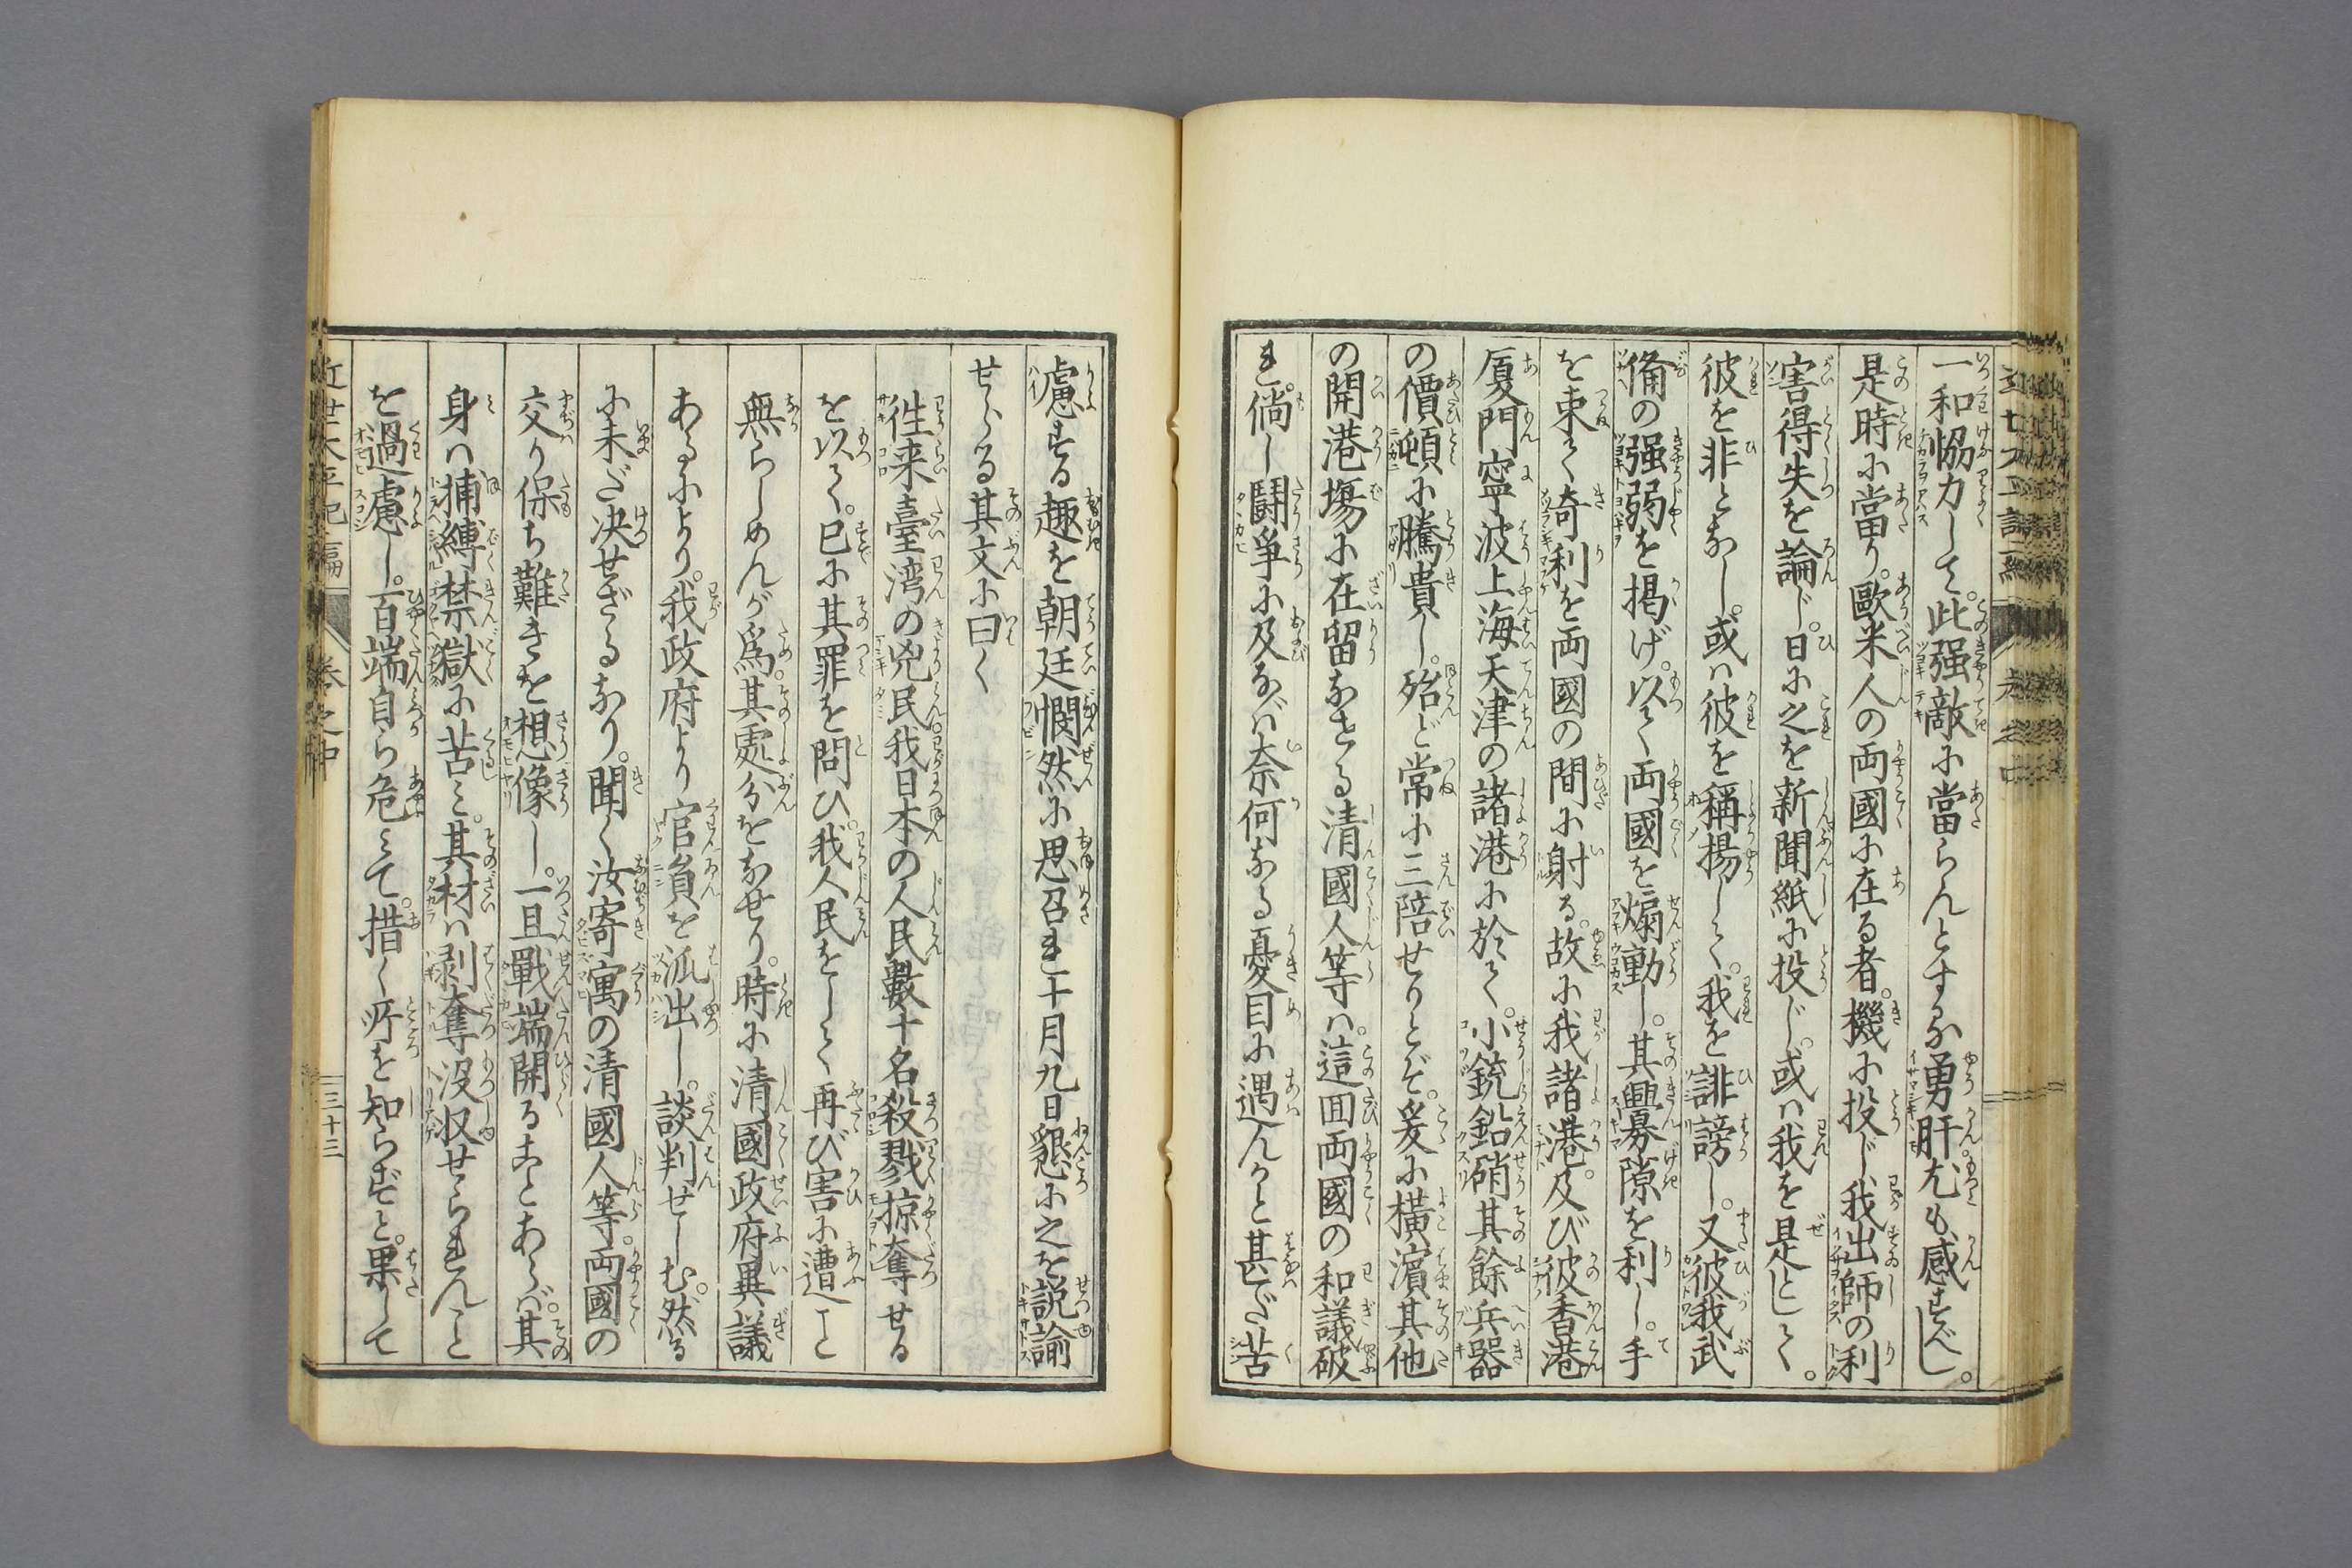 一和協力して。此强敵に當らんとするな勇肝。尤も感ずべし。
是時に當り。歐米人の両國に在る者。機に投じ我出師の利
害得失を論じ。日に之を新聞紙に投じ。或は我を是として。
彼を非となし。或は彼を稱揚して。我を誹謗し。又彼我武
備の强弱を掲げ。以て両國を煽動し。其興釁隙を利し。手
を束て奇利を両國の間に射る。故に我諸港。及び彼香港
厦門寧波上海天津の諸港に於て。小銃鉛硝其餘兵器
の價頓に騰貴し。殆ど常に三陪せりとぞ。爰に横濱其他
の開港塲に在留なせる清國人等は。這囬両國の和議破
れ。倘し鬪爭に及なば奈何なる憂目に遇んかと甚だ苦
慮する趣を朝廷憫然に思召れ十月九日懇に之を説諭
せらる其文に曰く
徃来臺湾の兇民我日本の人民數十名殺戮掠奪せる
を以て。已に其罪を問ひ。我人民をして再び害に遭こと
無らしめんが爲。其處分をなせり。時に清國政府異議
あるにより。我政府より官員を派出し。談判せしむ。然る
に未だ决せざるなり。聞く汝寄寓の清國人等。両國の
交り保ち難きを想像し。一旦戰端開ることあらば。其
身は捕縛禁獄に苦み。其材は剥奪没収せられんこと
を過慮し。百端自ら危みて。措く所を知らずと。果して
近世太平記二編
卷之中
三十三